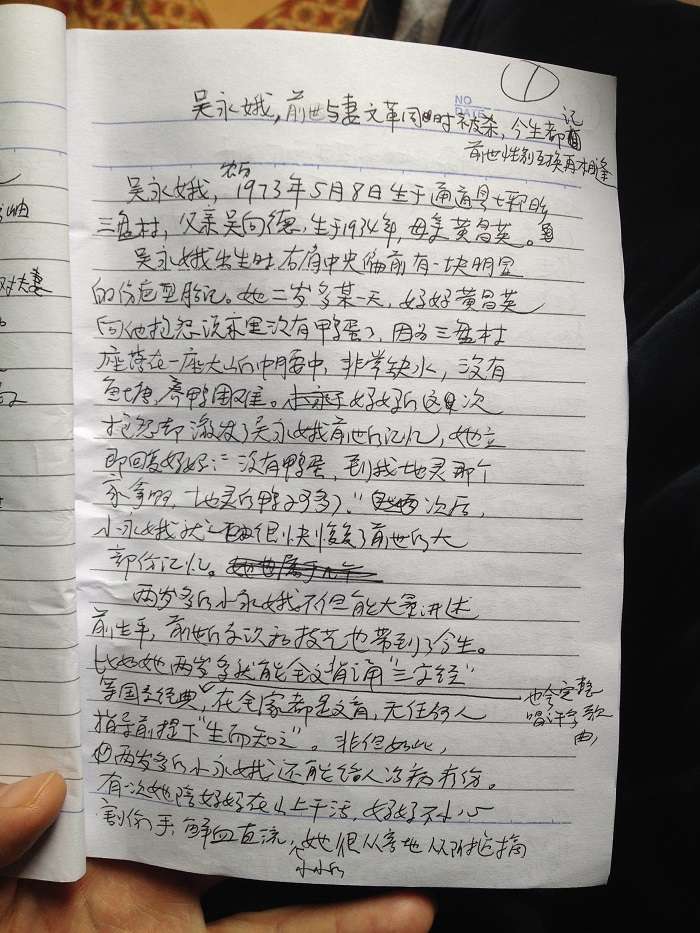 1
NO
DATE
吴永娥,前世与妻文革同时被杀,今生都记
前世性别互换再相逢
农历
吴永娥,1973年5月8日生于通道县七
三盘村,父亲吴向德,生于1934年,母亲黄昌英。
吴永娥出生时右肩中央偏前有一块明显
的伤疤型胎记。她二岁多某一天,奶奶黄昌英
向她抱怨说家里没有鸭蛋了,因为三盘村
座落在一座大山的中腰中,非常缺水,没有
鱼塘,养鸭困难。奶奶的这次
抱怨却激发了吴永娥前世的记忆,她立
即回答奶奶:“没有鸭蛋,到我地灵那个
家拿啊,地灵的鸭子多。”次后,
小永娥就很快恢复了前世的大
部份记忆。
两岁多的小永娥不但能大量讲述
前生事,前世的知识和技艺也带到了今生。
比如她两岁多就能全文背诵“三字经”
等国学经典,在全家都是文盲,无任何人
也会完整
唱许多歌
曲,
指导前提下“生而知之”。非但如此,
两岁多的小永娥还能给人治病疗伤。
有一次她陪奶奶在山上干活,奶奶不小心
割伤手,鲜血直流,小小的她很从容地从附近摘